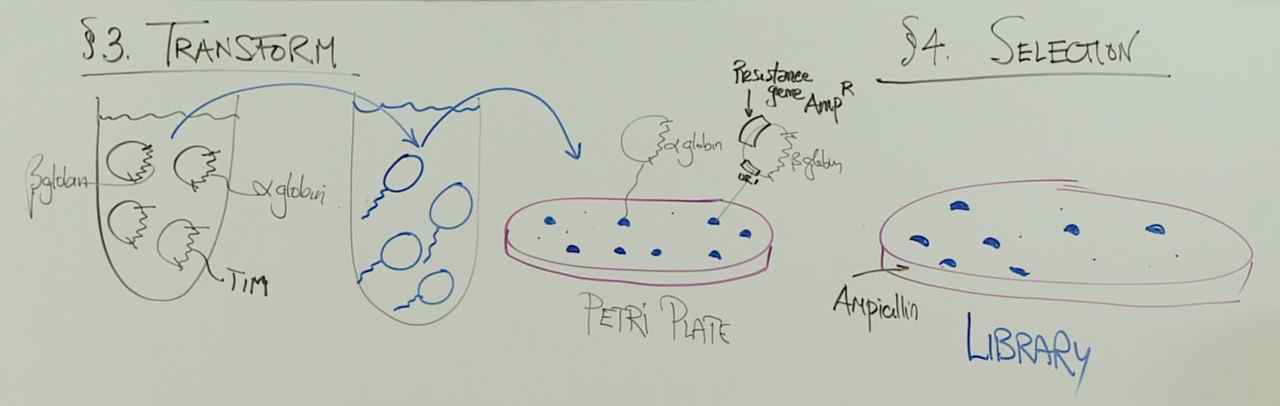 §3. TRANSFORM
βglobin
αglobin
TIM
αglobin
Resistance
gene AmpR
βglobin
ORI
PETRI PLATE
§4. SELECTION
Ampicillin
LIBRARY